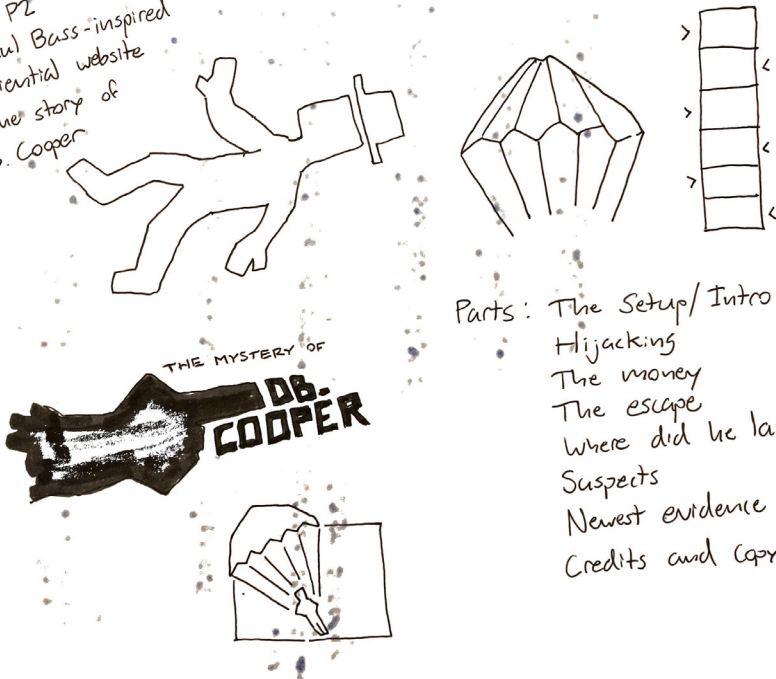 P2
Bass-inspired
website
story of
Cooper
THE MYSTERY OF
DB.
COOPER
Parts: The Setup/Intro
Hijacking
The money
The escape
where did he
Suspects
Newest evidence
Credits and